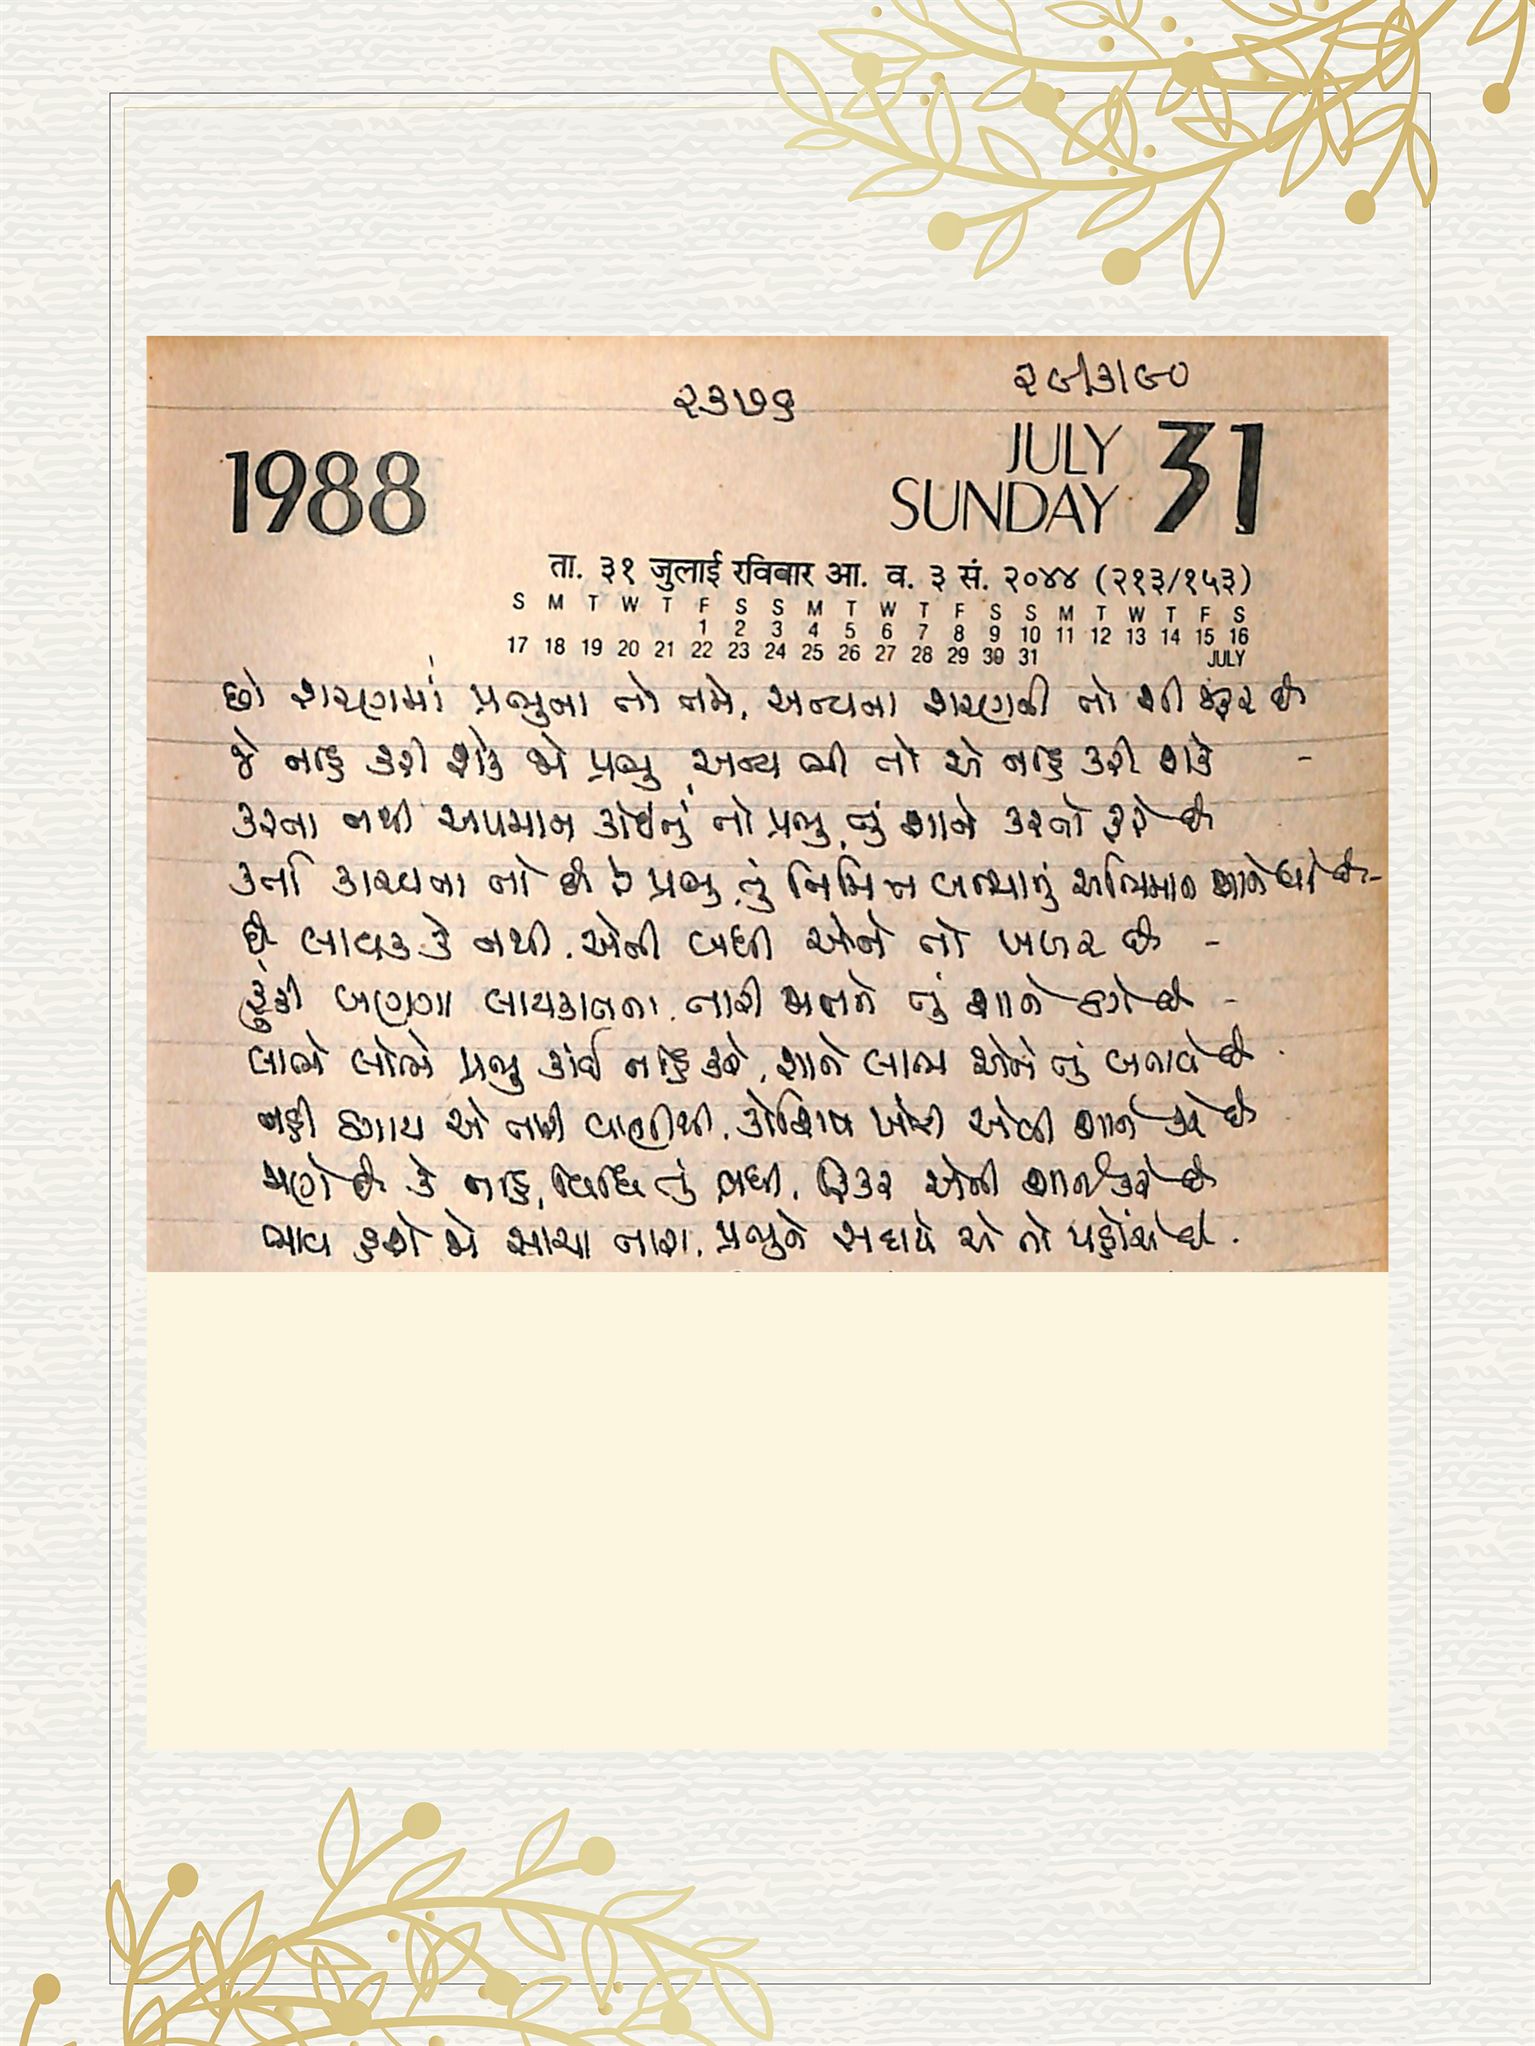 ૨૩૭૬
૨૯/૩/૯૦
1988
JULY
SUNDAY 31
ता. ३१ जुलाई रविवार आ. व. ३ सं. २०४४ (२१३/१५३)
S M T W T F S S M T W T F S S M T W T F S
1 2 3 4 5 6 7 8 9 10 11 12 13 14 15 16
17 18 19 20 21 22 23 24 25 26 27 28 29 30 31 JULY
છો શરણમાં પ્રભુના તો તમે, અન્યના શરણની તો શી જરૂર છે
જે નહિ કરી શકે જો પ્રભુ, અન્ય ભી તો એ નહિ કરી શકે -
કરતા નથી અપમાન કોઈનું તો પ્રભુ, તું શાને કરતો ફરે છે
કર્તા કારવતા તો છે રે પ્રભુ, તું નિમિત્ત બન્યાનું અભિમાન શાને ધરે છે -
છે લાયક કે નથી, એની બધી એને તો ખબર છે -
ફૂંકી બણગા લાયકાતના, તારી જાતને તું શાને ઠગે છે -
લાભે લોભે પ્રભુ કાંઈ નહિ કરે, શાને લાભ એને તું બતાવે છે -
નહીં ઠગાય એ તારી વાણીથી, કોશિશ ખોટી એવી શાને કરે છે
જાણે છે કે નહિ, વિધિ તું બધી, ફિકર એની શાને કરે છે
ભાવ હશે જો સાચા તારા, પ્રભુને સદાયે એ તો પહોંચે છે.